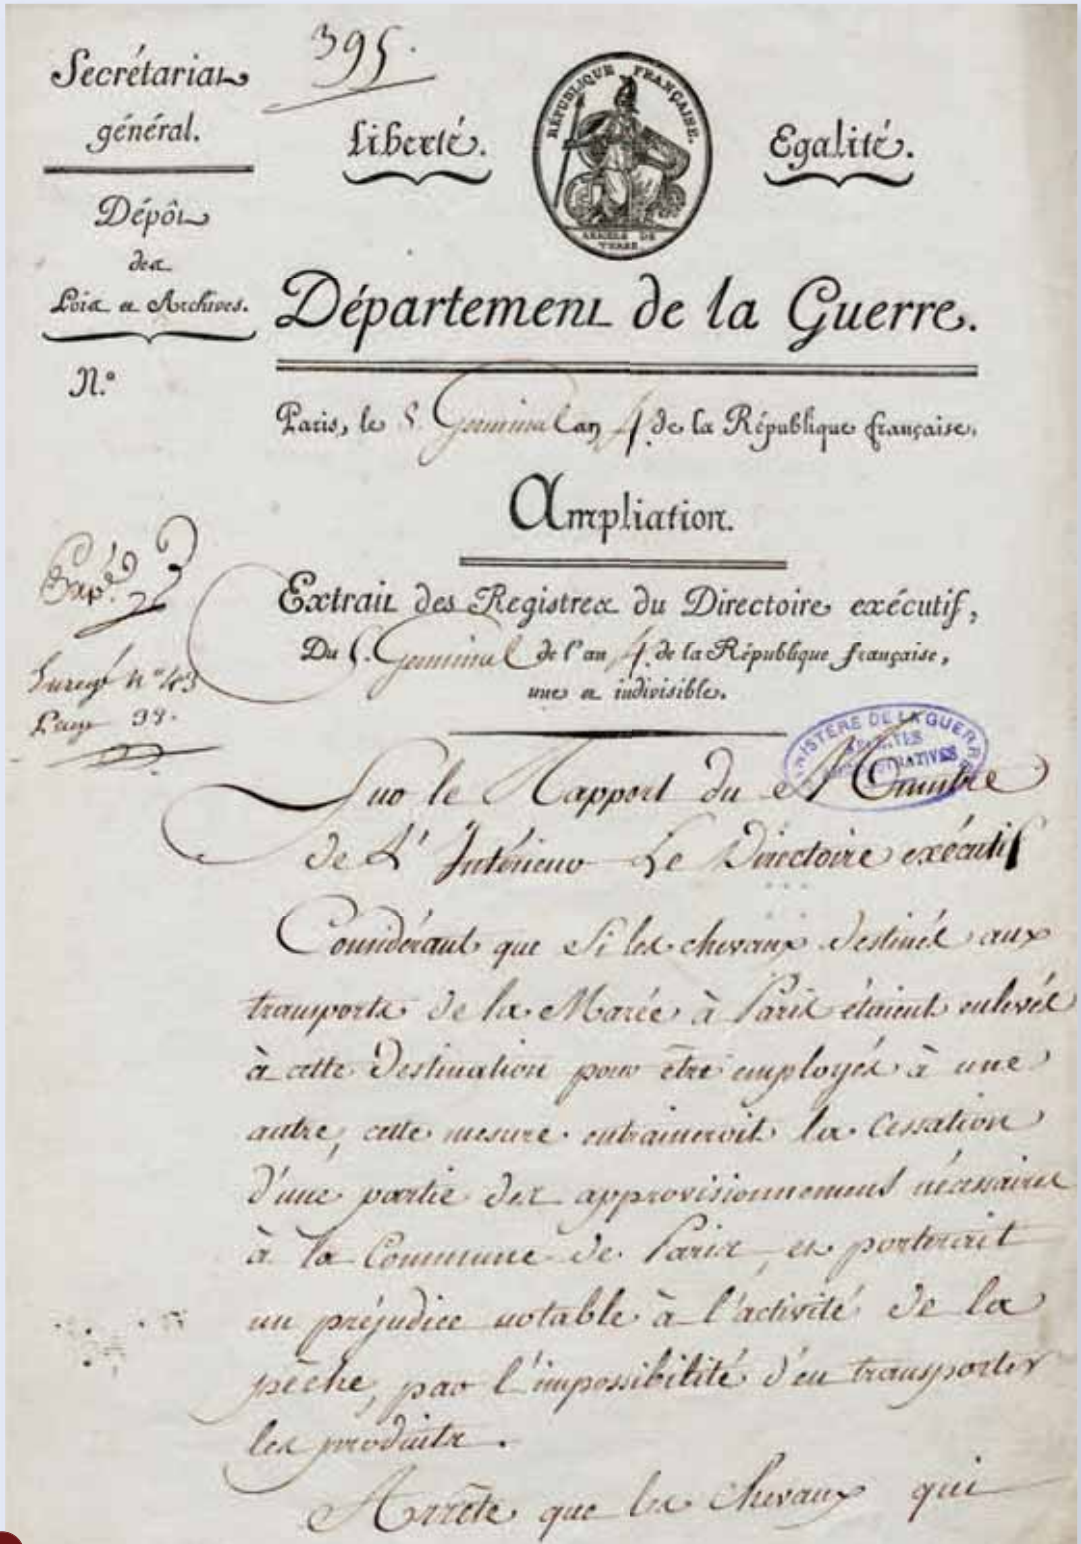 395.
Secrétariat
général.
Dépôt
des
Lois et Archives.
N.º
Liberté.
RÉPUBLIQUE FRANÇAISE.
ARMÉE DE
TERRE
Egalité.
Département de la Guerre.
Paris, le 5. Germinal an 4. de la République française.
Ampliation.
Extrait des Registres du Directoire exécutif,
Du 5. Germinal de l'an 4. de la République française,
une et indivisible.
Expé
Enregé nº 43
98.
MINISTÈRE DE LA GUERRE
ARCHIVES
ADMINISTRATIVES
Sur le Rapport du Ministre
de L'Intérieur Le Directoire exécutif
Considérant que Si les chevaux destinés aux
transports de la Marée à Paris étaient enlevés
à cette destination pour être employés à une
autre, cette mesure entraineroit la Cessation
d'une partie des approvisionnemens nécessaires
à la Commune de Paris, et porterait
un préjudice notable à l'activité de la
pèche, par l'impossibilité d'en transporter
les produits.
Arrête que les Chevaux qui